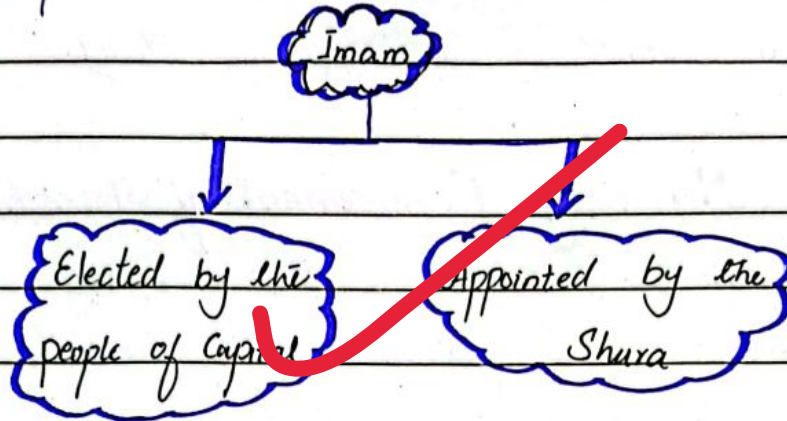 Imam
Elected by the
people of Capital
Appointed by the
Shura